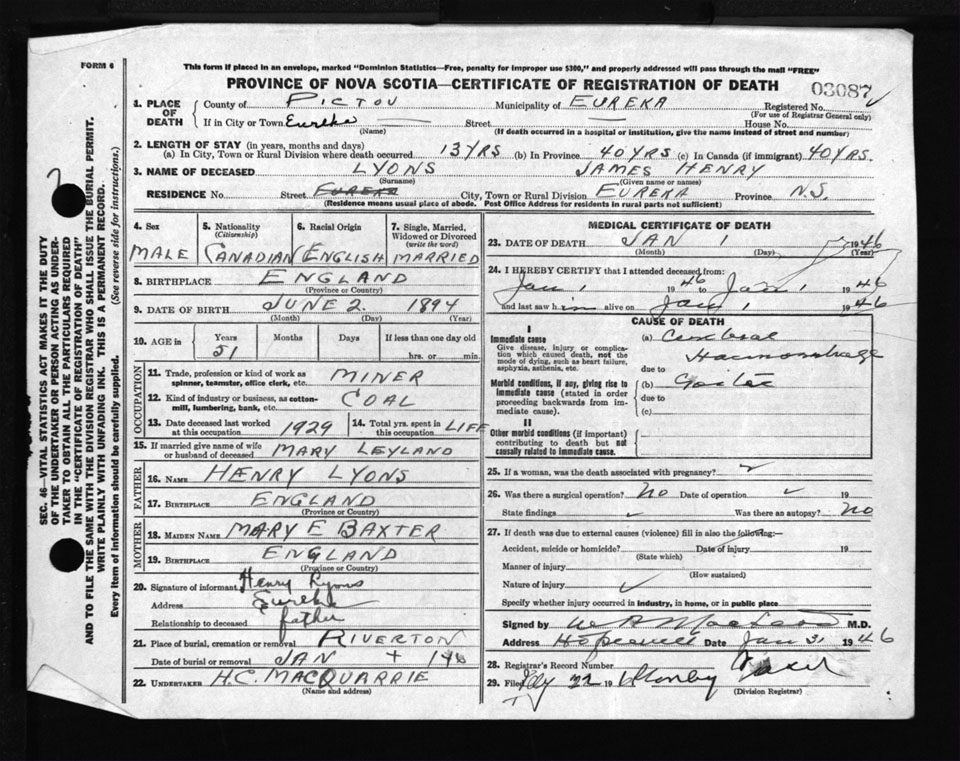 FORM 6
This form if placed in an envelope, marked "Dominion Statistics—Free, penalty for improper use $300," and properly addressed will pass through the mail "FREE"
PROVINCE OF NOVA SCOTIA—CERTIFICATE OF REGISTRATION OF DEATH
03087
1. PLACE OF DEATH
County of PICTOU Municipality of EUREKA Registered No.
(For use of Registrar General only)
If in City or Town Eureka Street House No.
(Name) (If death occurred in a hospital or institution, give the name instead of street and number)
2. LENGTH OF STAY (in years, months and days)
(a) In City, Town or Rural Division where death occurred 13 YRS (b) In Province 40 YRS (c) In Canada (if immigrant) 40 YRS.
3. NAME OF DECEASED LYONS JAMES HENRY
(Surname) (Given name or names)
RESIDENCE No. Street EUREKA City, Town or Rural Division EUREKA Province N.S.
(Residence means usual place of abode. Post Office Address for residents in rural parts not sufficient)
4. Sex
MALE
5. Nationality
(Citizenship)
CANADIAN
6. Racial Origin
ENGLISH
7. Single, Married, Widowed or Divorced
(write the word)
MARRIED
8. BIRTHPLACE ENGLAND
(Province or Country)
9. DATE OF BIRTH JUNE 2 1894
(Month) (Day) (Year)
10. AGE in
Years Months Days If less than one day old
51 hrs. or min.
OCCUPATION
11. Trade, profession or kind of work as spinner, teamster, office clerk, etc. MINER
12. Kind of industry or business, as cotton-mill, lumbering, bank, etc. COAL
13. Date deceased last worked at this occupation 1929
14. Total yrs. spent in this occupation LIFE
15. If married give name of wife or husband of deceased MARY LEYLAND
FATHER
16. NAME HENRY LYONS
17. BIRTHPLACE ENGLAND
(Province or Country)
MOTHER
18. MAIDEN NAME MARY E BAXTER
19. BIRTHPLACE ENGLAND
(Province or Country)
20. Signature of informant Henry Lyons
Address Eureka
Relationship to deceased father
21. Place of burial, cremation or removal RIVERTON
Date of burial or removal JAN
22. UNDERTAKER H.C. MACQUARRIE
(Name and address)
MEDICAL CERTIFICATE OF DEATH
23. DATE OF DEATH JAN 1 1946
(Month) (Day) (Year)
24. I HEREBY CERTIFY that I attended deceased from:
Jan 1 1946 to Jan 1 1946
and last saw h im alive on Jan 1 1946
CAUSE OF DEATH
I
Immediate cause
Give disease, injury or complication which caused death, not the mode of dying, such as heart failure, asphyxia, asthenia, etc.
(a) Cerebral Haemorrhage
due to
Morbid conditions, if any, giving rise to immediate cause (stated in order proceeding backwards from immediate cause).
(b) Goitre
due to
(c)
II
Other morbid conditions (if important) contributing to death but not causally related to immediate cause.
25. If a woman, was the death associated with pregnancy?
26. Was there a surgical operation? No Date of operation 19
State findings Was there an autopsy? No
27. If death was due to external causes (violence) fill in also the following:—
Accident, suicide or homicide? Date of injury 19
(State which)
Manner of injury
(How sustained)
Nature of injury
Specify whether injury occurred in industry, in home, or in public place
Signed by M.D.
Address Hopewell Date Jan 3 1946
28. Registrar's Record Number
29. Filed 19
(Division Registrar)
SEC. 46—VITAL STATISTICS ACT MAKES IT THE DUTY
OF THE UNDERTAKER OR PERSON ACTING AS UNDER-
TAKER TO OBTAIN ALL THE PARTICULARS REQUIRED
IN THE "CERTIFICATE OF REGISTRATION OF DEATH"
AND TO FILE THE SAME WITH THE DIVISION REGISTRAR WHO SHALL ISSUE THE BURIAL PERMIT.
WRITE PLAINLY WITH UNFADING INK. THIS IS A PERMANENT RECORD.
Every item of information should be carefully supplied. (See reverse side for instructions.)